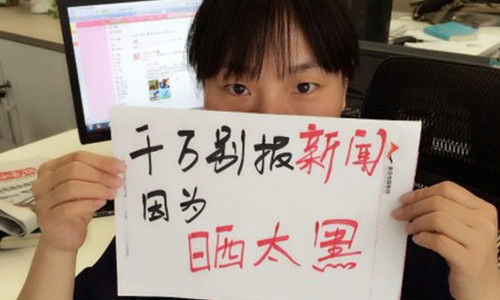 千万别报新闻
因为
晒太黑